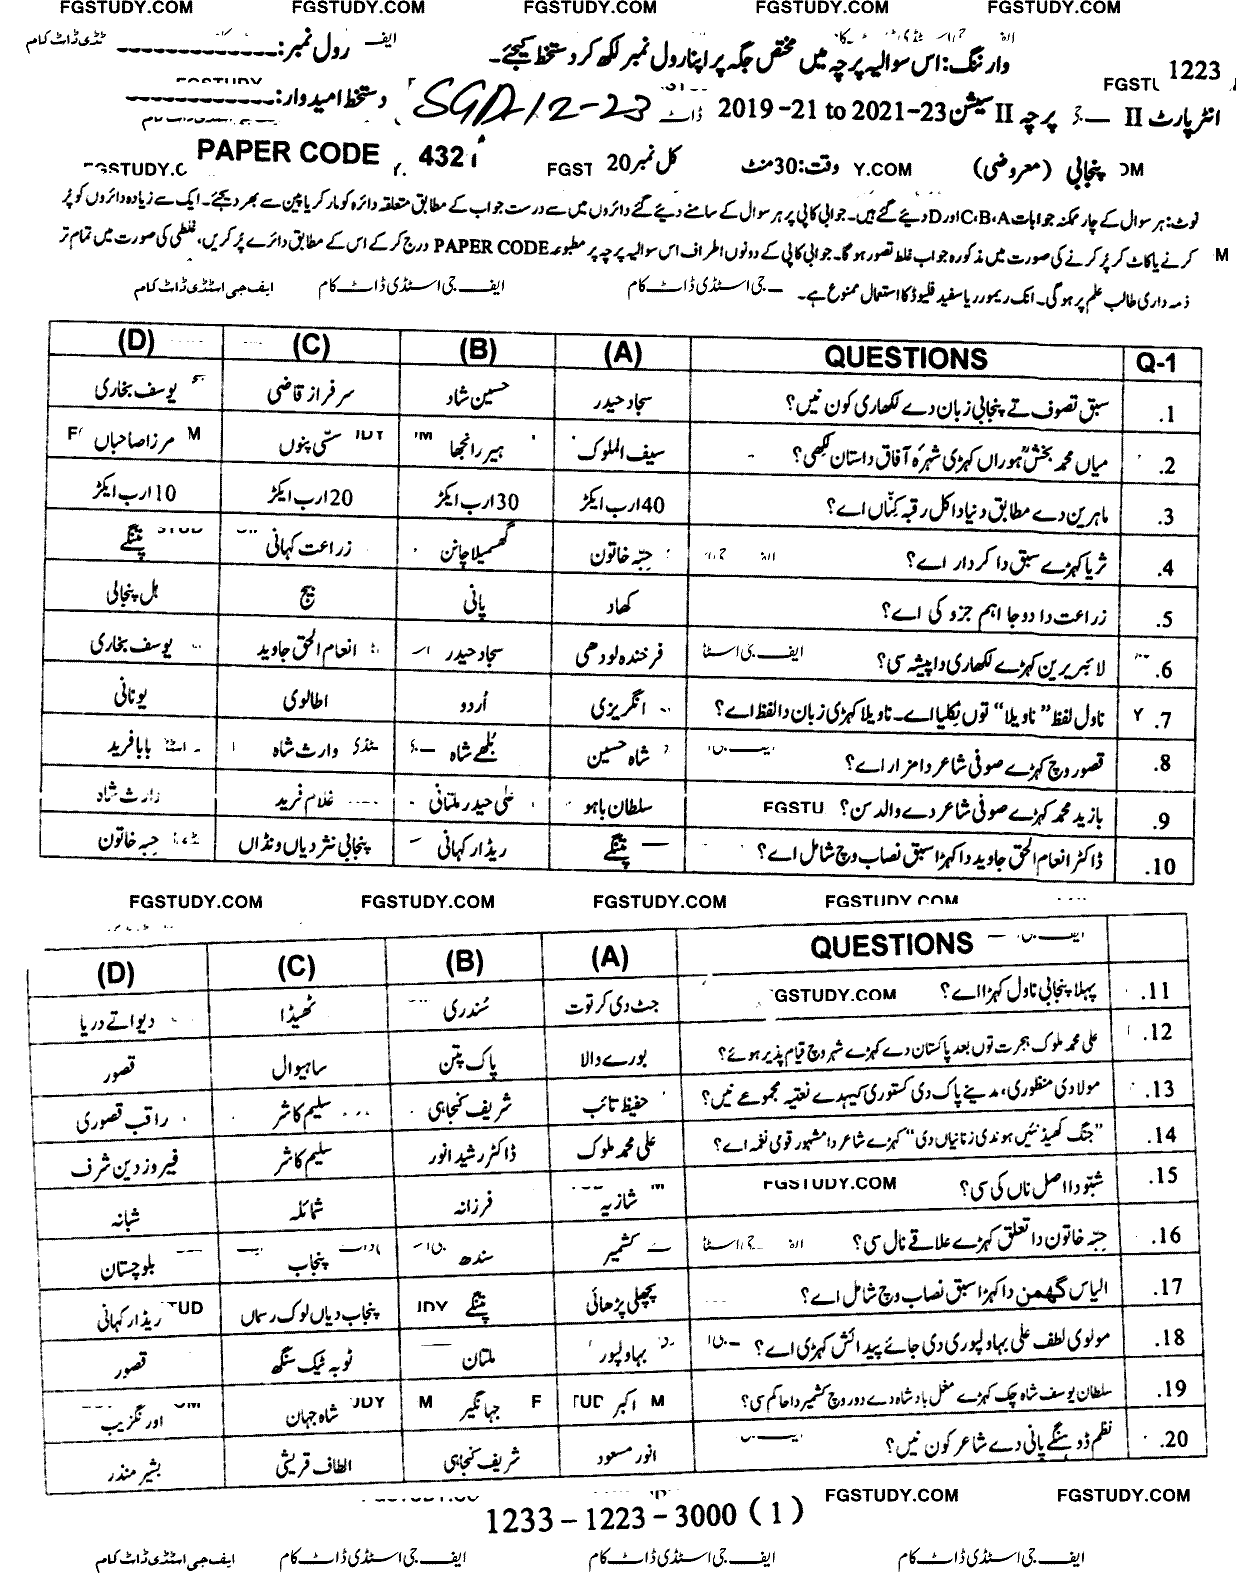 FGSTUDY.COM FGSTUDY.COM FGSTUDY.COM FGSTUDY.COM FGSTUDY.COM
وارننگ: اس سوالیہ پرچہ میں مختص جگہ پر اپنا رول نمبر لکھ کر دستخط کیجئے۔ رول نمبر: ------------
1223
انٹر پارٹ II پرچہ II سیشن 2021-23 to 2019-21 SGD-12-23 دستخط امیدوار: ------------
پنجابی (معروضی) وقت: 30 منٹ کل نمبر 20 PAPER CODE 432
نوٹ: ہر سوال کے چار ممکنہ جوابات A، B، C اور D دیئے گئے ہیں۔ جوابی کاپی پر ہر سوال کے سامنے دیئے گئے دائروں میں سے درست جواب کے مطابق متعلقہ دائرہ کو مارکر یا پین سے بھر دیجئے۔ ایک سے زیادہ دائروں کو پُر
کرنے یا کاٹ کر پُر کرنے کی صورت میں مذکورہ جواب غلط تصور ہوگا۔ جوابی کاپی کے دونوں اطراف اس سوالیہ پرچہ پر مطبوعہ PAPER CODE درج کر کے اس کے مطابق دائرے پُر کریں، غلطی کی صورت میں تمام تر
ذمہ داری طالب علم پر ہوگی۔ انک ریموور یا سفید فلیوڈ کا استعمال ممنوع ہے۔
ایف جی اسٹڈی ڈاٹ کام ایف جی اسٹڈی ڈاٹ کام
Q-1 QUESTIONS (A) (B) (C) (D)
1. سبق تصوف تے پنجابی زبان دے لکھاری کون نیں؟ سجاد حیدر حسین شاد سرفراز قاضی یوسف بخاری
2. میاں محمد بخشؒ ہوراں کہڑی شہرہ آفاق داستان لکھی؟ سیف الملوک ہیر رانجھا سسّی پنوں مرزا صاحباں
3. ماہرین دے مطابق دنیا دا کل رقبہ کِنّاں اے؟ 40 ارب ایکڑ 30 ارب ایکڑ 20 ارب ایکڑ 10 ارب ایکڑ
4. ثریا کہڑے سبق دا کردار اے؟ حبّہ خاتون گھسمیلا چانن زراعت کہانی پتنگے
5. زراعت دا دوجا اہم جزو کی اے؟ کھاد پانی بیج ہل پنجالی
6. لائبریرین کہڑے لکھاری دا پیشہ سی؟ فرخندہ لودھی سجاد حیدر انعام الحق جاوید یوسف بخاری
7. ناول لفظ "ناویلا" توں نکلیا اے۔ ناویلا کہڑی زبان دا لفظ اے؟ انگریزی اُردو اطالوی یونانی
8. قصور وچ کہڑے صوفی شاعر دا مزار اے؟ شاہ حسین بُلھے شاہ وارث شاہ بابا فرید
9. بازید محمد کہڑے صوفی شاعر دے والد سن؟ سلطان باہو علی حیدر ملتانی غلام فرید وارث شاہ
10. ڈاکٹر انعام الحق جاوید دا کہڑا سبق نصاب وچ شامل اے؟ پتنگے ریڈار کہانی پنجابی نثر دیاں ونڈاں حبہ خاتون
FGSTUDY.COM FGSTUDY.COM FGSTUDY.COM FGSTUDY.COM
QUESTIONS (A) (B) (C) (D)
11. پہلا پنجابی ناول کہڑا اے؟ جٹ دی کرتوت سُندری ٹھیڈا دیوا تے دریا
12. علی محمد ملوک ہجرت توں بعد پاکستان دے کہڑے شہر وچ قیام پذیر ہوئے؟ بورے والا پاک پتن ساہیوال قصور
13. مولا دی منظوری، مدینے پاک دی کستوری کیہدے نعتیہ مجموعے نیں؟ حفیظ تائب شریف کنجاہی سلیم کاشر راقب قصوری
14. "جنگ کھیڈ نئیں ہوندی زنانیاں دی" کہڑے شاعر دا مشہور قومی نغمہ اے؟ علی محمد ملوک ڈاکٹر رشید انور سلیم کاشر فیروز دین شرف
15. شبّو دا اصل ناں کی سی؟ شازیہ فرزانہ شمائلہ شبانہ
16. حبّہ خاتون دا تعلق کہڑے علاقے نال سی؟ کشمیر سندھ پنجاب بلوچستان
17. الیاس گھمن دا کہڑا سبق نصاب وچ شامل اے؟ پچھلی پڑھائی پتنگے پنجاب دیاں لوک رسماں ریڈار کہانی
18. مولوی لطف علی بہاولپوری دی جائے پیدائش کہڑی اے؟ بہاولپور ملتان ٹوبہ ٹیک سنگھ قصور
19. سلطان یوسف شاہ چک کہڑے مغل بادشاہ دے دور وچ کشمیر دا حاکم سی؟ اکبر جہانگیر شاہ جہان اورنگزیب
20. نظم ڈونگے پانی دے شاعر کون نیں؟ انور مسعود شریف کنجاہی الطاف قریشی بشیر منذر
FGSTUDY.COM FGSTUDY.COM
1233 – 1223 – 3000 ( 1 )
ایف جی اسٹڈی ڈاٹ کام ایف جی اسٹڈی ڈاٹ کام ایف جی اسٹڈی ڈاٹ کام ایف جی اسٹڈی ڈاٹ کام